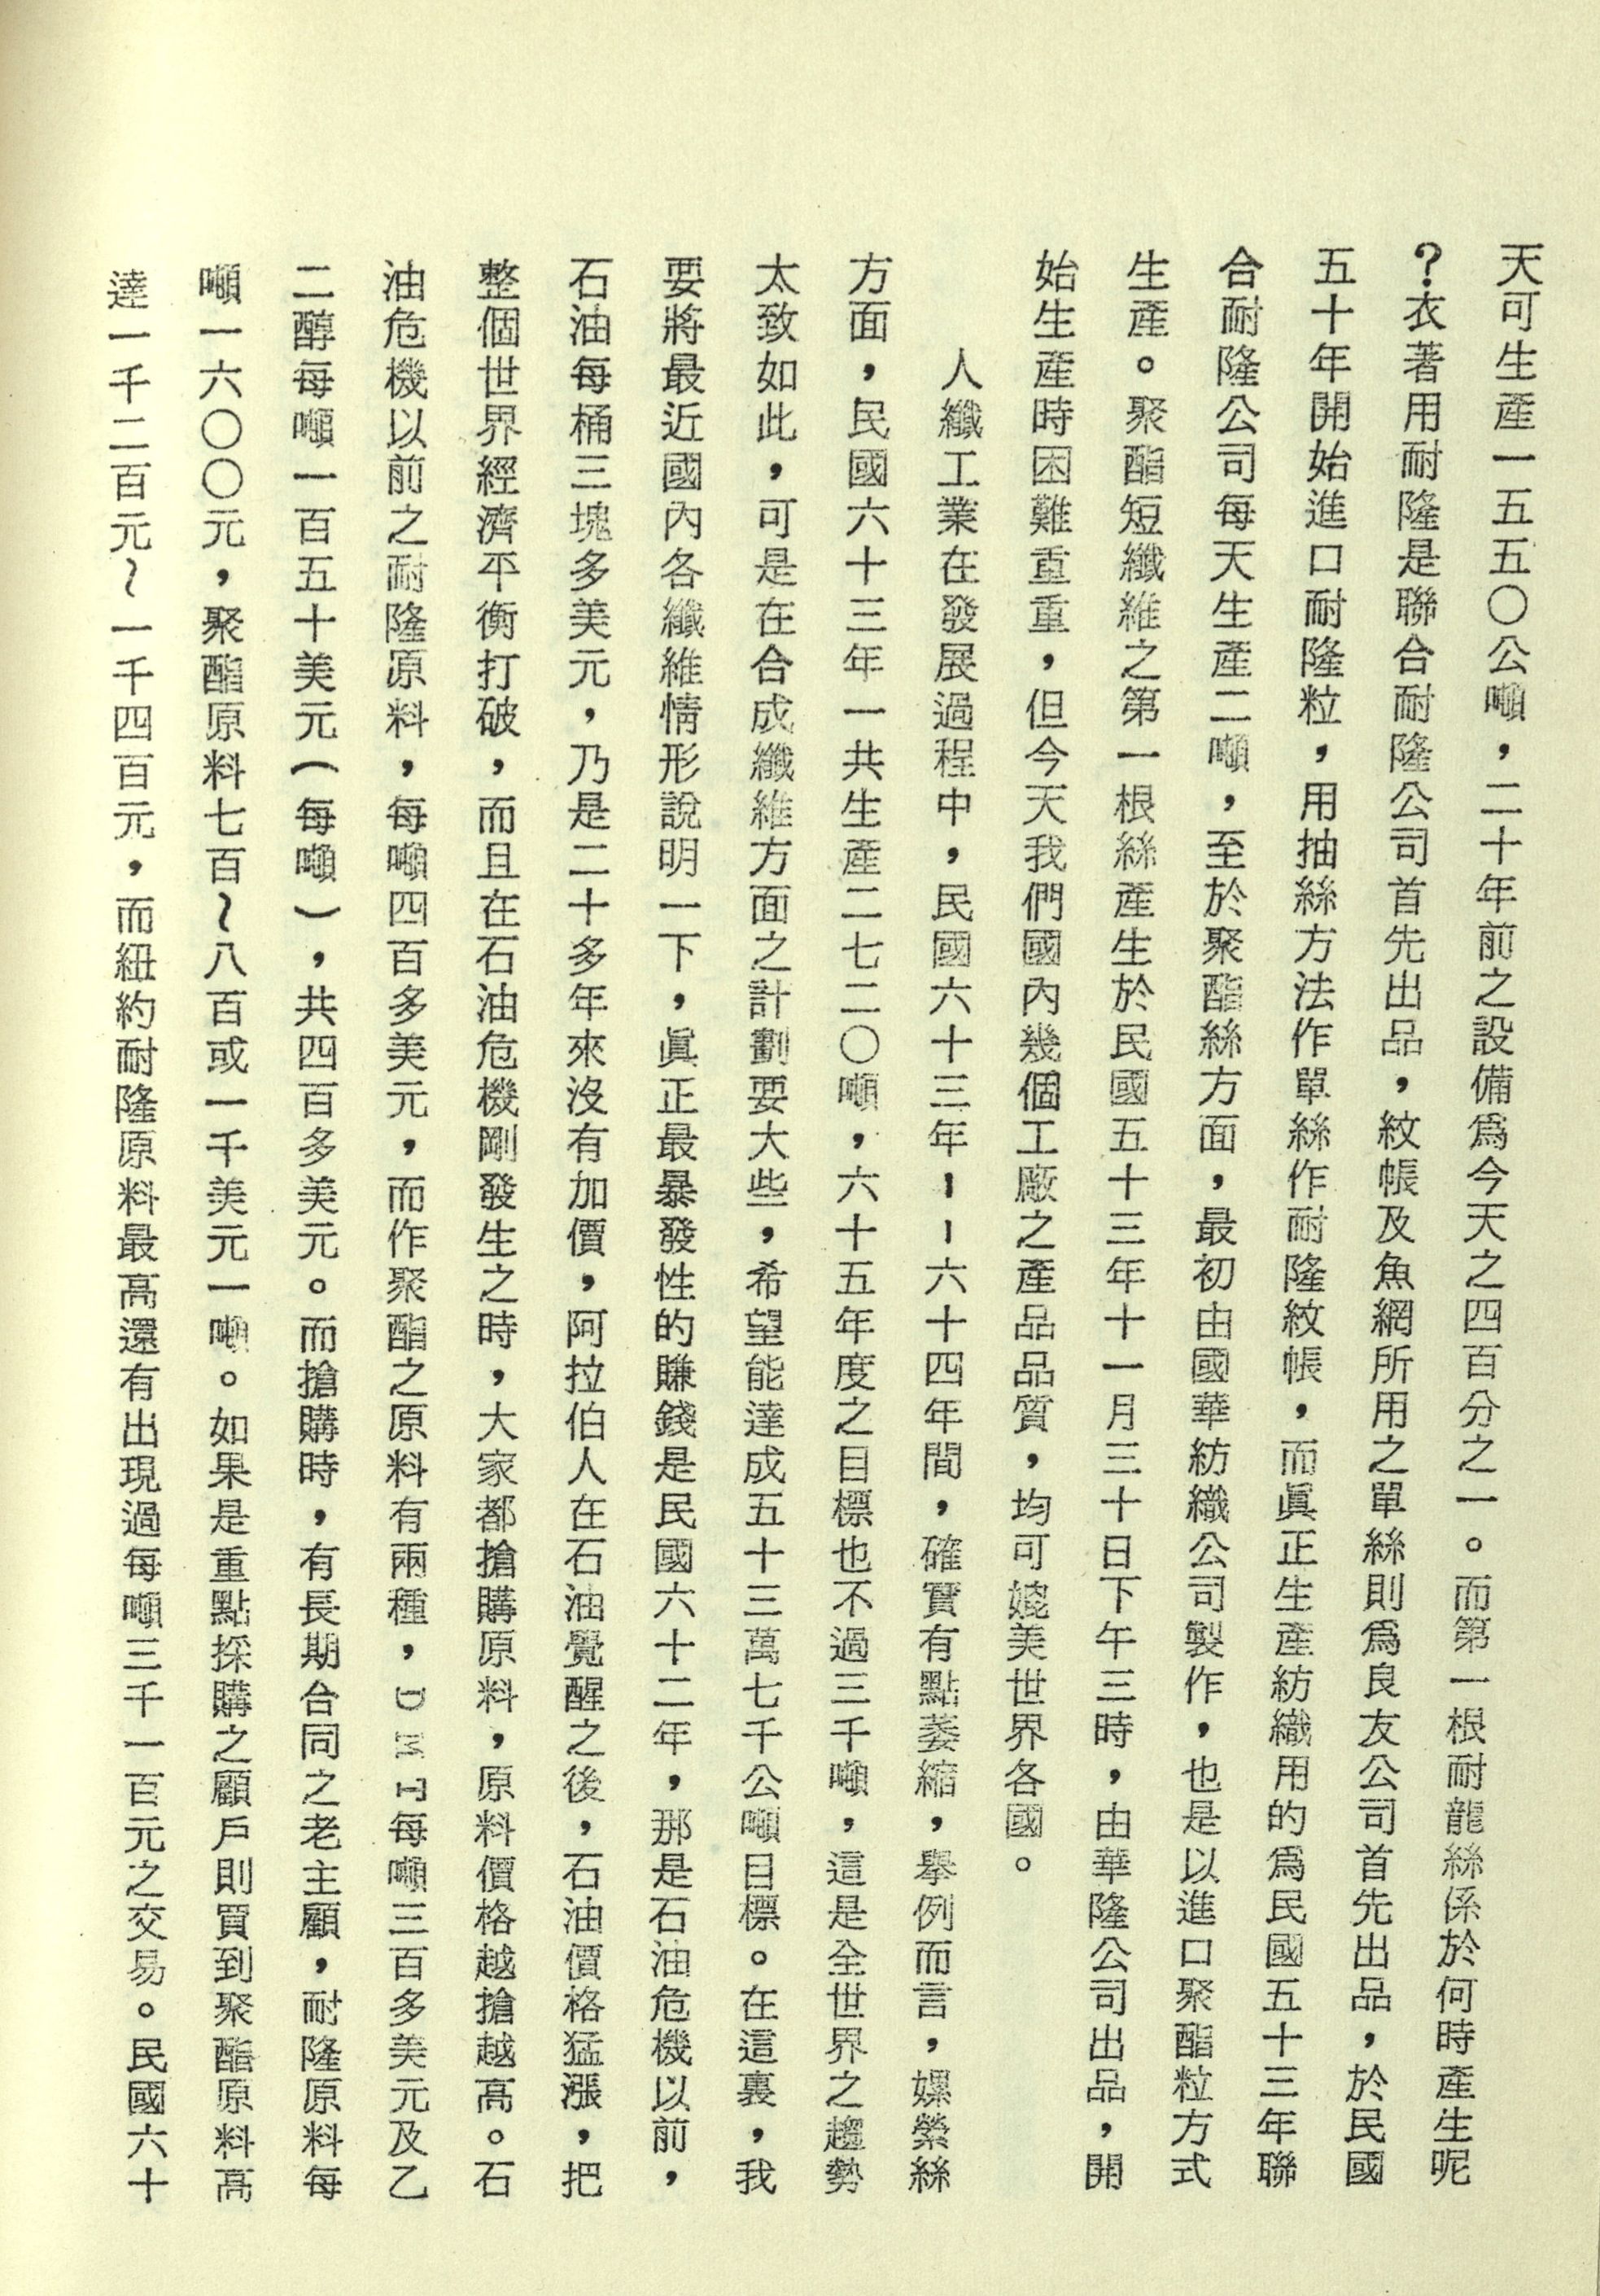 天可生產一五五〇公噸，二十年前之設備爲今天之四百分之一。而第一根耐龍絲係於何時產生呢
？衣著用耐隆是聯合耐隆公司首先出品，紋帳及魚網所用之單絲則爲良友公司首先出品，於民國
五十年開始進口耐隆粒，用抽絲方法作單絲作耐隆紋帳，而眞正生產紡織用的爲民國五十三年聯
合耐隆公司每天生產二噸，至於聚酯絲方面，最初由國華紡織公司製作，也是以進口聚酯粒方式
生產。聚酯短纖維之第一根絲產生於民國五十三年十一月三十日下午三時，由華隆公司出品，開
始生產時困難重重，但今天我們國內幾個工廠之產品品質，均可媲美世界各國。
人纖工業在發展過程中，民國六十三年－－六十四年間，確實有點萎縮，舉例而言，嫘縈絲
方面，民國六十三年一共生產二七二〇噸，六十五年度之目標也不過三千噸，這是全世界之趨勢
太致如此，可是在合成纖維方面之計劃要大些，希望能達成五十三萬七千公噸目標。在這裏，我
要將最近國內各纖維情形說明一下，眞正最暴發性的賺錢是民國六十二年，那是石油危機以前，
石油每桶三塊多美元，乃是二十多年來沒有加價，阿拉伯人在石油覺醒之後，石油價格猛漲，把
整個世界經濟平衡打破，而且在石油危機剛發生之時，大家都搶購原料，原料價格越搶越高。石
油危機以前之耐隆原料，每噸四百多美元，而作聚酯之原料有兩種，DMT每噸三百多美元及乙
二醇每噸一百五十美元（每噸），共四百多美元。而搶購時，有長期合同之老主顧，耐隆原料每
噸一六〇〇元，聚酯原料七百～八百或一千美元一噸。如果是重點採購之顧戶則買到聚酯原料高
達一千二百元～一千四百元，而紐約耐隆原料最高還有出現過每噸三千一百元之交易。民國六十